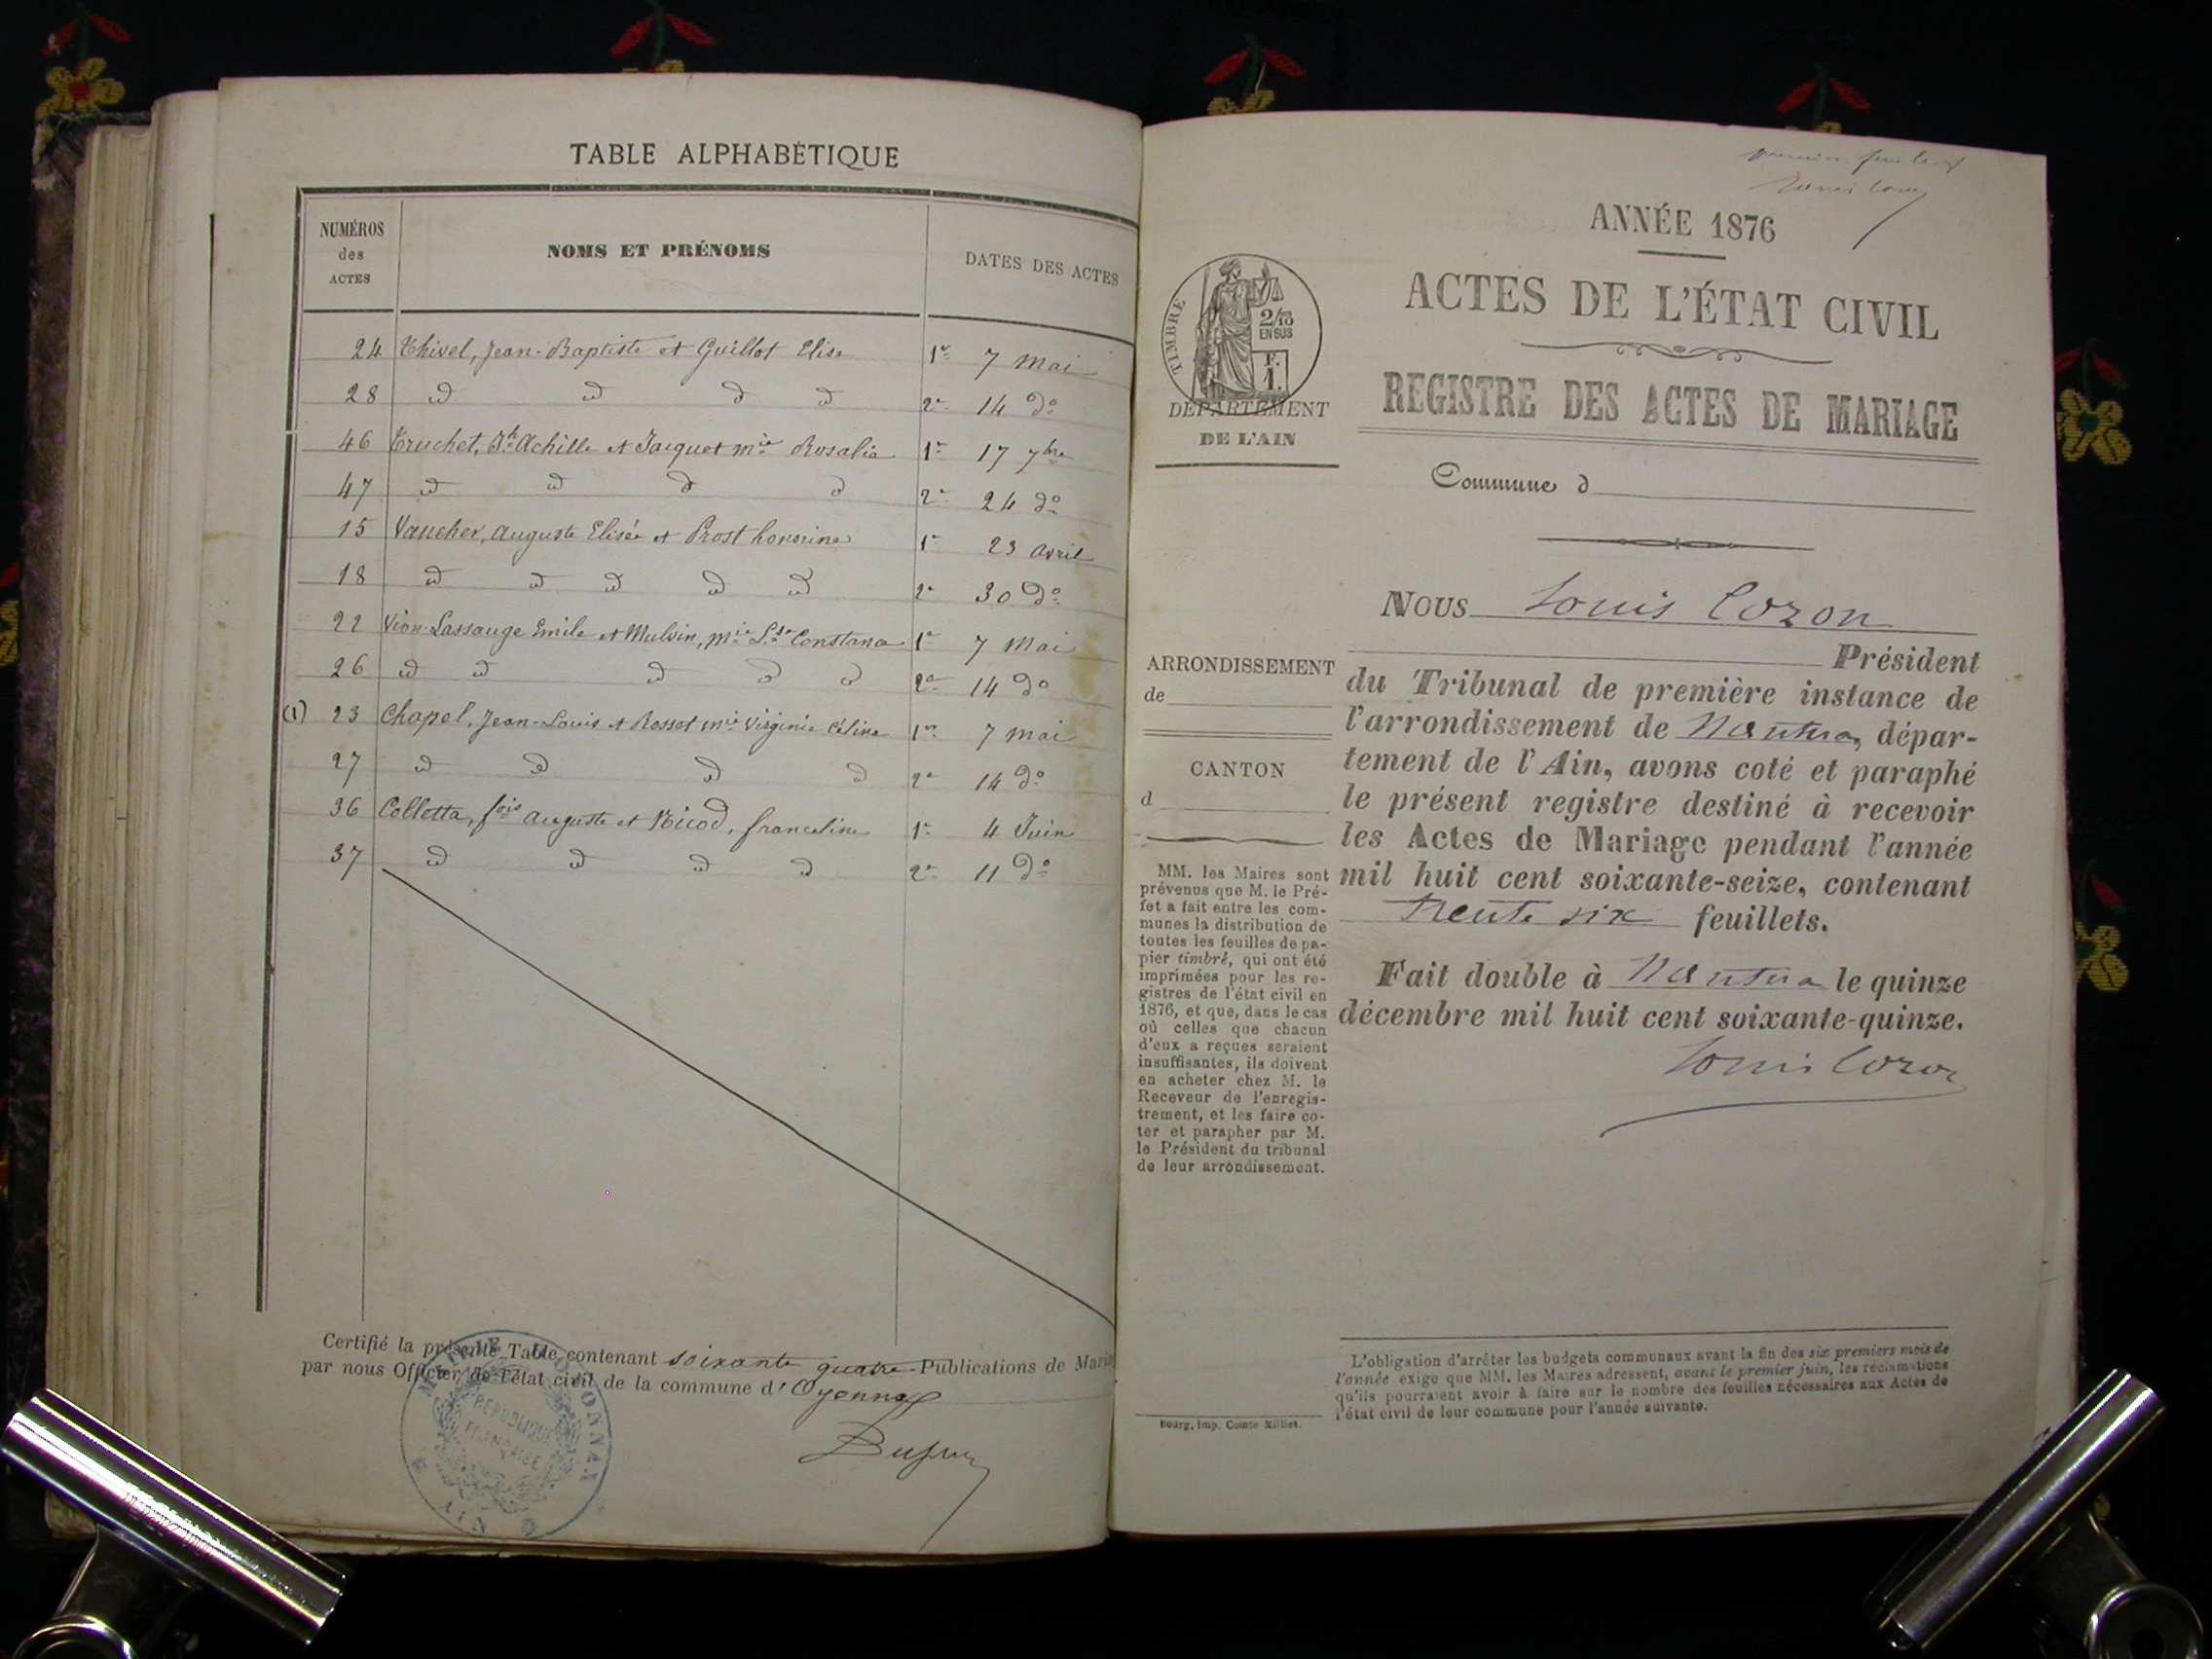 TABLE ALPHABÉTIQUE
NUMÉROS
des
ACTES
NOMS ET PRÉNOMS
DATES DES ACTES
24 Thivel, Jean-Baptiste et Guillot Elise 1re 7 Mai
28 d d d d 2e 14 do
46 Truchet, Jh Achille et Jacquet mie Rosalie 1re 17 7bre
47 d d d d 2e 24 do
15 Vaucher, Auguste Elisée et Prost honorine 1re 23 avril
18 d d d d d 2e 30 do
22 Vion-Lassauge Emile et Mulvin, mie Lse Constance 1re 7 Mai
26 d d d d d 2e 14 do
(1) 23 Chapel, Jean-Louis et Rosset mie Virginie Céline 1re 7 mai
27 d d d d 2e 14 do
36 Colletta, fois auguste et Nicod, franceline 1re 4 Juin
37 d d d d 2e 11 do
Certifié la présente Table, contenant soixante quatre Publications de Maria
par nous Officier de l'état civil de la commune d' Oyonnax
MAIRIE D'OYONNAX
RÉPUBLIQUE
FRANÇAISE
AIN
premier feuillet
Louis Cozon
ANNÉE 1876
ACTES DE L'ÉTAT CIVIL
REGISTRE DES ACTES DE MARIAGE
TIMBRE
2/10
EN SUS
F.
1.
DÉPARTEMENT
DE L'AIN
Commune d
Nous Louis Cozon
Président
du Tribunal de première instance de
l'arrondissement de Nantua, dépar-
tement de l'Ain, avons coté et paraphé
le présent registre destiné à recevoir
les Actes de Mariage pendant l'année
mil huit cent soixante-seize, contenant
trente six feuillets.
Fait double à Nantua le quinze
décembre mil huit cent soixante-quinze.
Louis Cozon
ARRONDISSEMENT
de
CANTON
d
MM. les Maires sont
prévenus que M. le Pré-
fet a fait entre les com-
munes la distribution de
toutes les feuilles de pa-
pier timbré, qui ont été
imprimées pour les re-
gistres de l'état civil en
1876, et que, dans le cas
où celles que chacun
d'eux a reçues seraient
insuffisantes, ils doivent
en acheter chez M. le
Receveur de l'enregis-
trement, et les faire co-
ter et parapher par M.
le Président du tribunal
de leur arrondissement.
Bourg, Imp. Comte Milliet.
L'obligation d'arrêter les budgets communaux avant la fin des six premiers mois de
l'année exige que MM. les Maires adressent, avant le premier juin, les réclamations
qu'ils pourraient avoir à faire sur le nombre des feuilles nécessaires aux Actes de
l'état civil de leur commune pour l'année suivante.